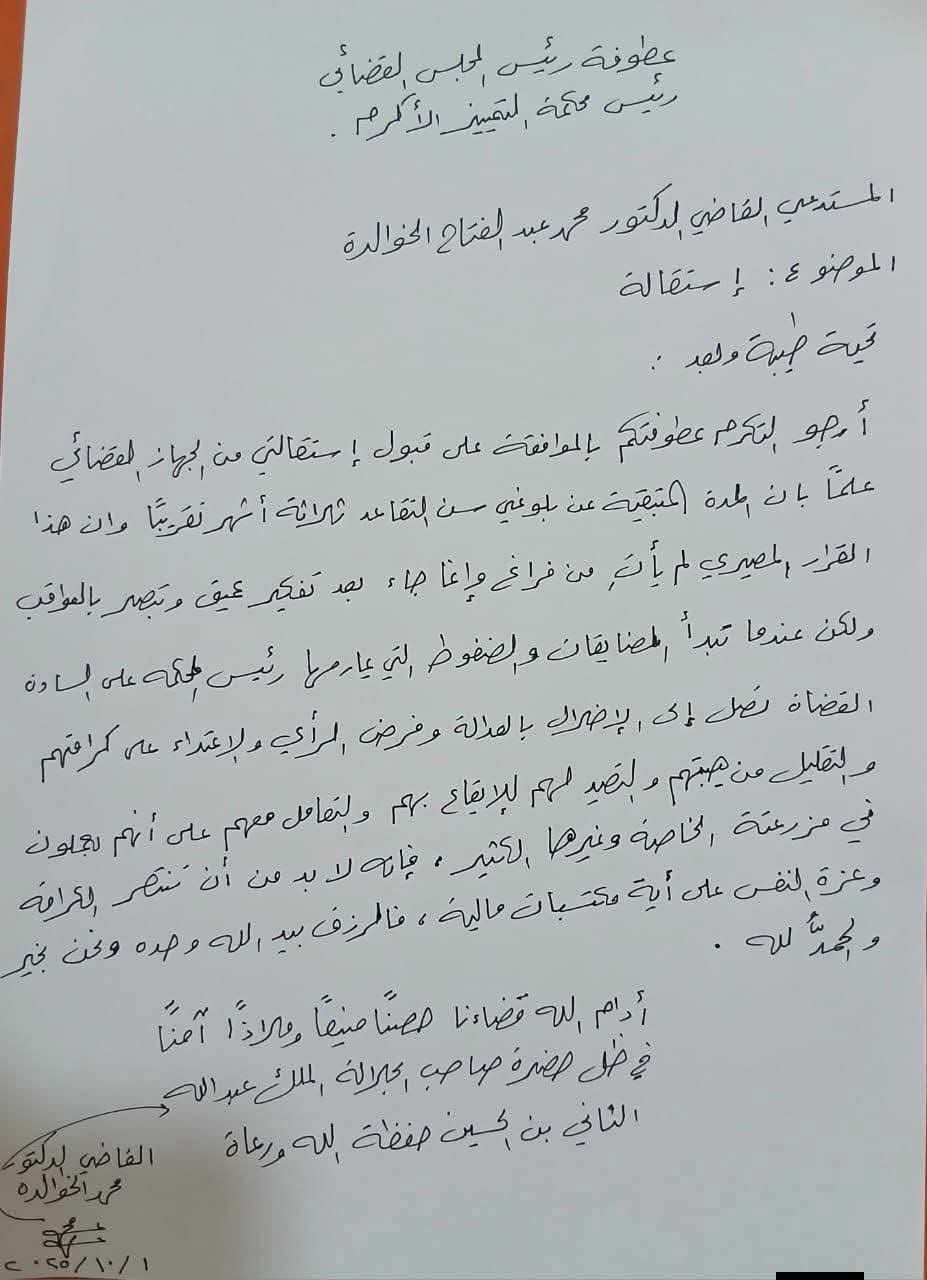 عطوفة رئيس المجلس القضائي
رئيس محكمة التمييز الأكرم .
المستدعي القاضي الدكتور محمد عبد الفتاح الخوالدة
الموضوع : إستقالة
تحية طيبة وبعد :
أرجو التكرم عطوفتكم بالموافقة على قبول إستقالتي من الجهاز القضائي
علماً بان المدة المتبقية عن بلوغي سن التقاعد ثلاثة أشهر تقريباً وان هذا
القرار المصيري لم يأتِ من فراغ وإنما جاء بعد تفكير عميق وتبصر بالعواقب
ولكن عندما تبدأ المضايقات والضغوط التي يمارسها رئيس المحكمة على السادة
القضاة تصل إلى الإخلال بالعدالة وفرض الرأي والاعتداء على كرامتهم
والتقليل من هيبتهم والتصيد لهم للإيقاع بهم والتعامل معهم على أنهم يعملون
في مزرعته الخاصة وغيرها الكثير ، فإنه لا بد من أن تنتصر الكرامة
وعزة النفس على أية مكتسبات مالية ، فالرزق بيد الله وحده ونحن بخير
والحمدُ لله .
أدام الله قضاءنا حصناً منيعاً وملاذاً آمناً
في ظل حضرة صاحب الجلالة الملك عبدالله
الثاني بن الحسين حفظة الله ورعاة
القاضي الدكتور
محمد الخوالده
٢٠٢٥/١٠/١